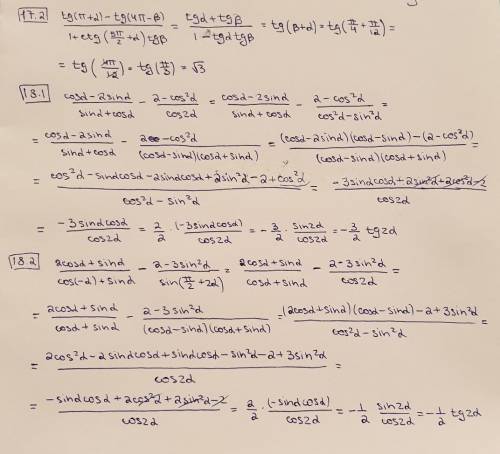 17.2 (tg(π+α) - tg(4π-β)) / (1+ctg(5π/2+α)tgβ) = (tgα+tgβ) / (1-tgαtgβ) = tg(β+α) = tg(π/4+π/12) =
= tg(4π/12) = tg(π/3) = √3
18.1 (cosα-2sinα)/(sinα+cosα) - (2-cos²α)/cos2α = (cosα-2sinα)/(sinα+cosα) - (2-cos²α)/(cos²α-sin²α) =
= (cosα-2sinα)/(sinα+cosα) - (2-cos²α)/((cosα-sinα)(cosα+sinα)) = ((cosα-2sinα)(cosα-sinα)-(2-cos²α))/((cosα-sinα)(cosα+sinα)) =
= (cos²α-sinαcosα-2sinαcosα+2sin²α-2+cos²α)/(cos²α-sin²α) = (-3sinαcosα+2sin²α+2cos²α-2)/cos2α
= -3sinαcosα/cos2α = 2/2 · (-3sinαcosα)/cos2α = -3/2 · sin2α/cos2α = -3/2 tg2α
18.2 (2cosα+sinα)/(cos(-α)+sinα) - (2-3sin²α)/sin(π/2+2α) = (2cosα+sinα)/(cosα+sinα) - (2-3sin²α)/cos2α =
= (2cosα+sinα)/(cosα+sinα) - (2-3sin²α)/((cosα-sinα)(cosα+sinα)) = ((2cosα+sinα)(cosα-sinα)-2+3sin²α)/(cos²α-sin²α) =
= (2cos²α-2sinαcosα+sinαcosα-sin²α-2+3sin²α)/cos2α =
= (-sinαcosα+2cos²α+2sin²α-2)/cos2α = 2/2 · (-sinαcosα)/cos2α = -1/2 sin2α/cos2α = -1/2 tg2α